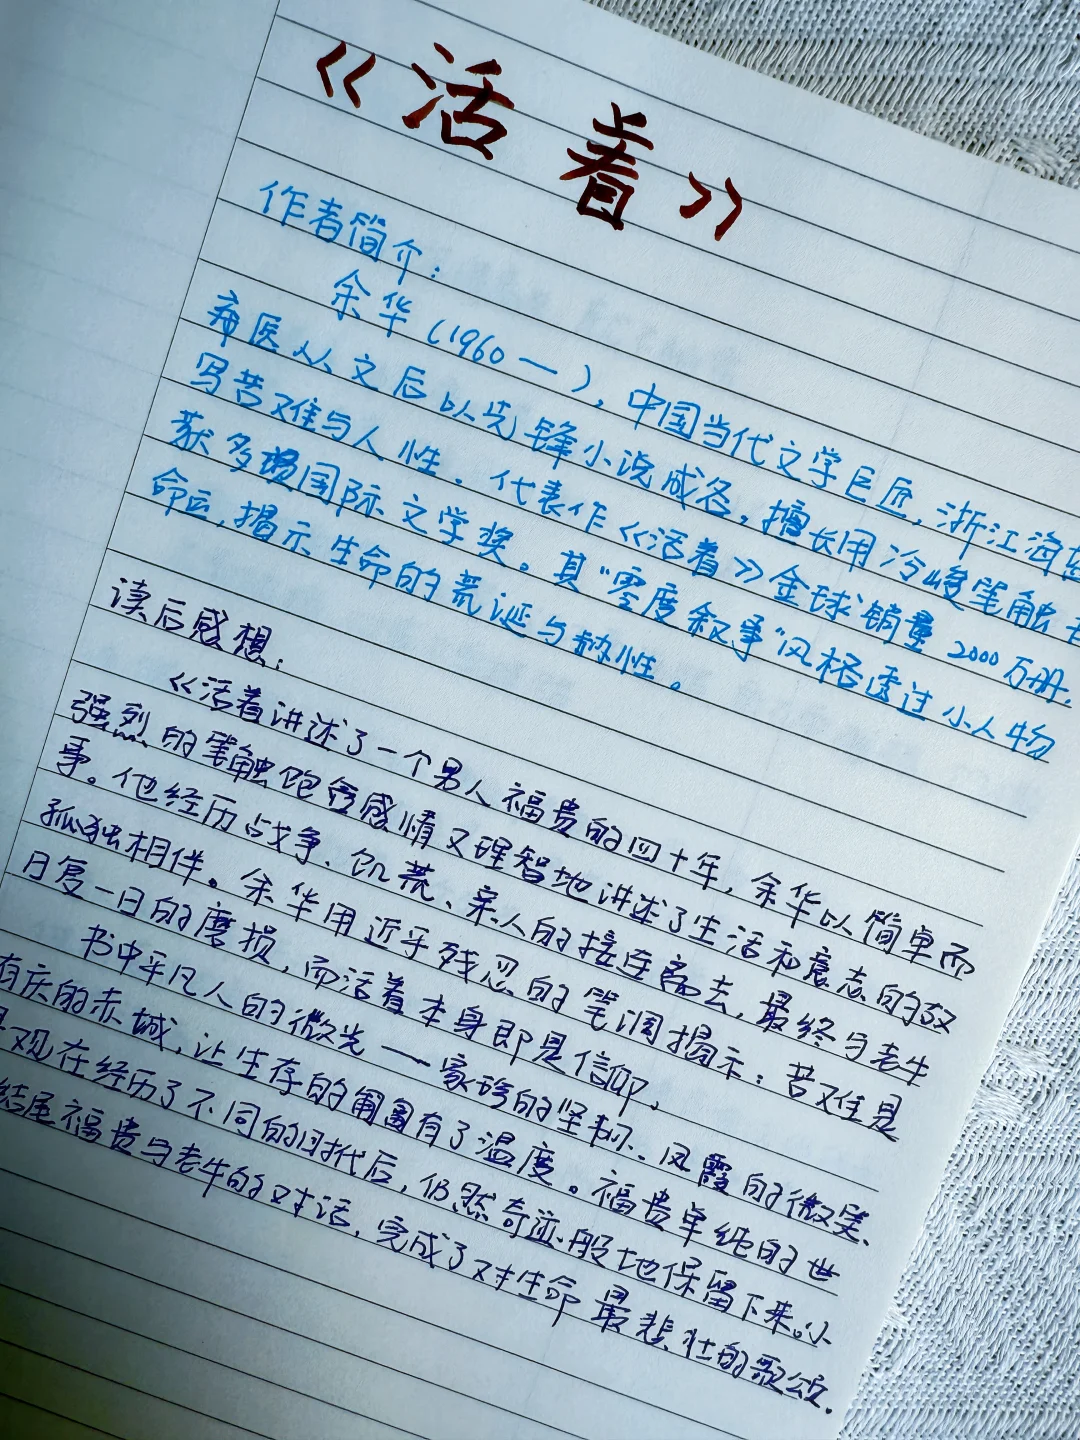 《活着》
作者简介：
余华（1960—），中国当代文学巨匠，浙江海盐
弃医从文后以先锋小说成名，擅长用冷峻笔触书
写苦难与人性。代表作《活着》全球销量2000万册，
获多项国际文学奖。其“零度叙事”风格透过小人物
命运，揭示生命的荒诞与韧性。
读后感想：
《活着讲述了一个男人福贵的四十年，余华以简单而
强烈的笔触饱含感情又理智地讲述了生活和意志的故
事。他经历战争、饥荒、亲人的接连离去，最终与老牛
孤独相伴。余华用近乎残忍的笔调揭示：苦难是
日复一日的磨损，而活着本身即是信仰，
书中平凡人的微光——家珍的坚韧、凤霞的微笑、
有庆的赤诚，让生存的匍匐有了温度。福贵单纯的世
界观在经历了不同的时代后，仍然奇迹般地保留下来。小
结尾福贵与老牛的对话，完成了对生命最悲壮的歌颂。